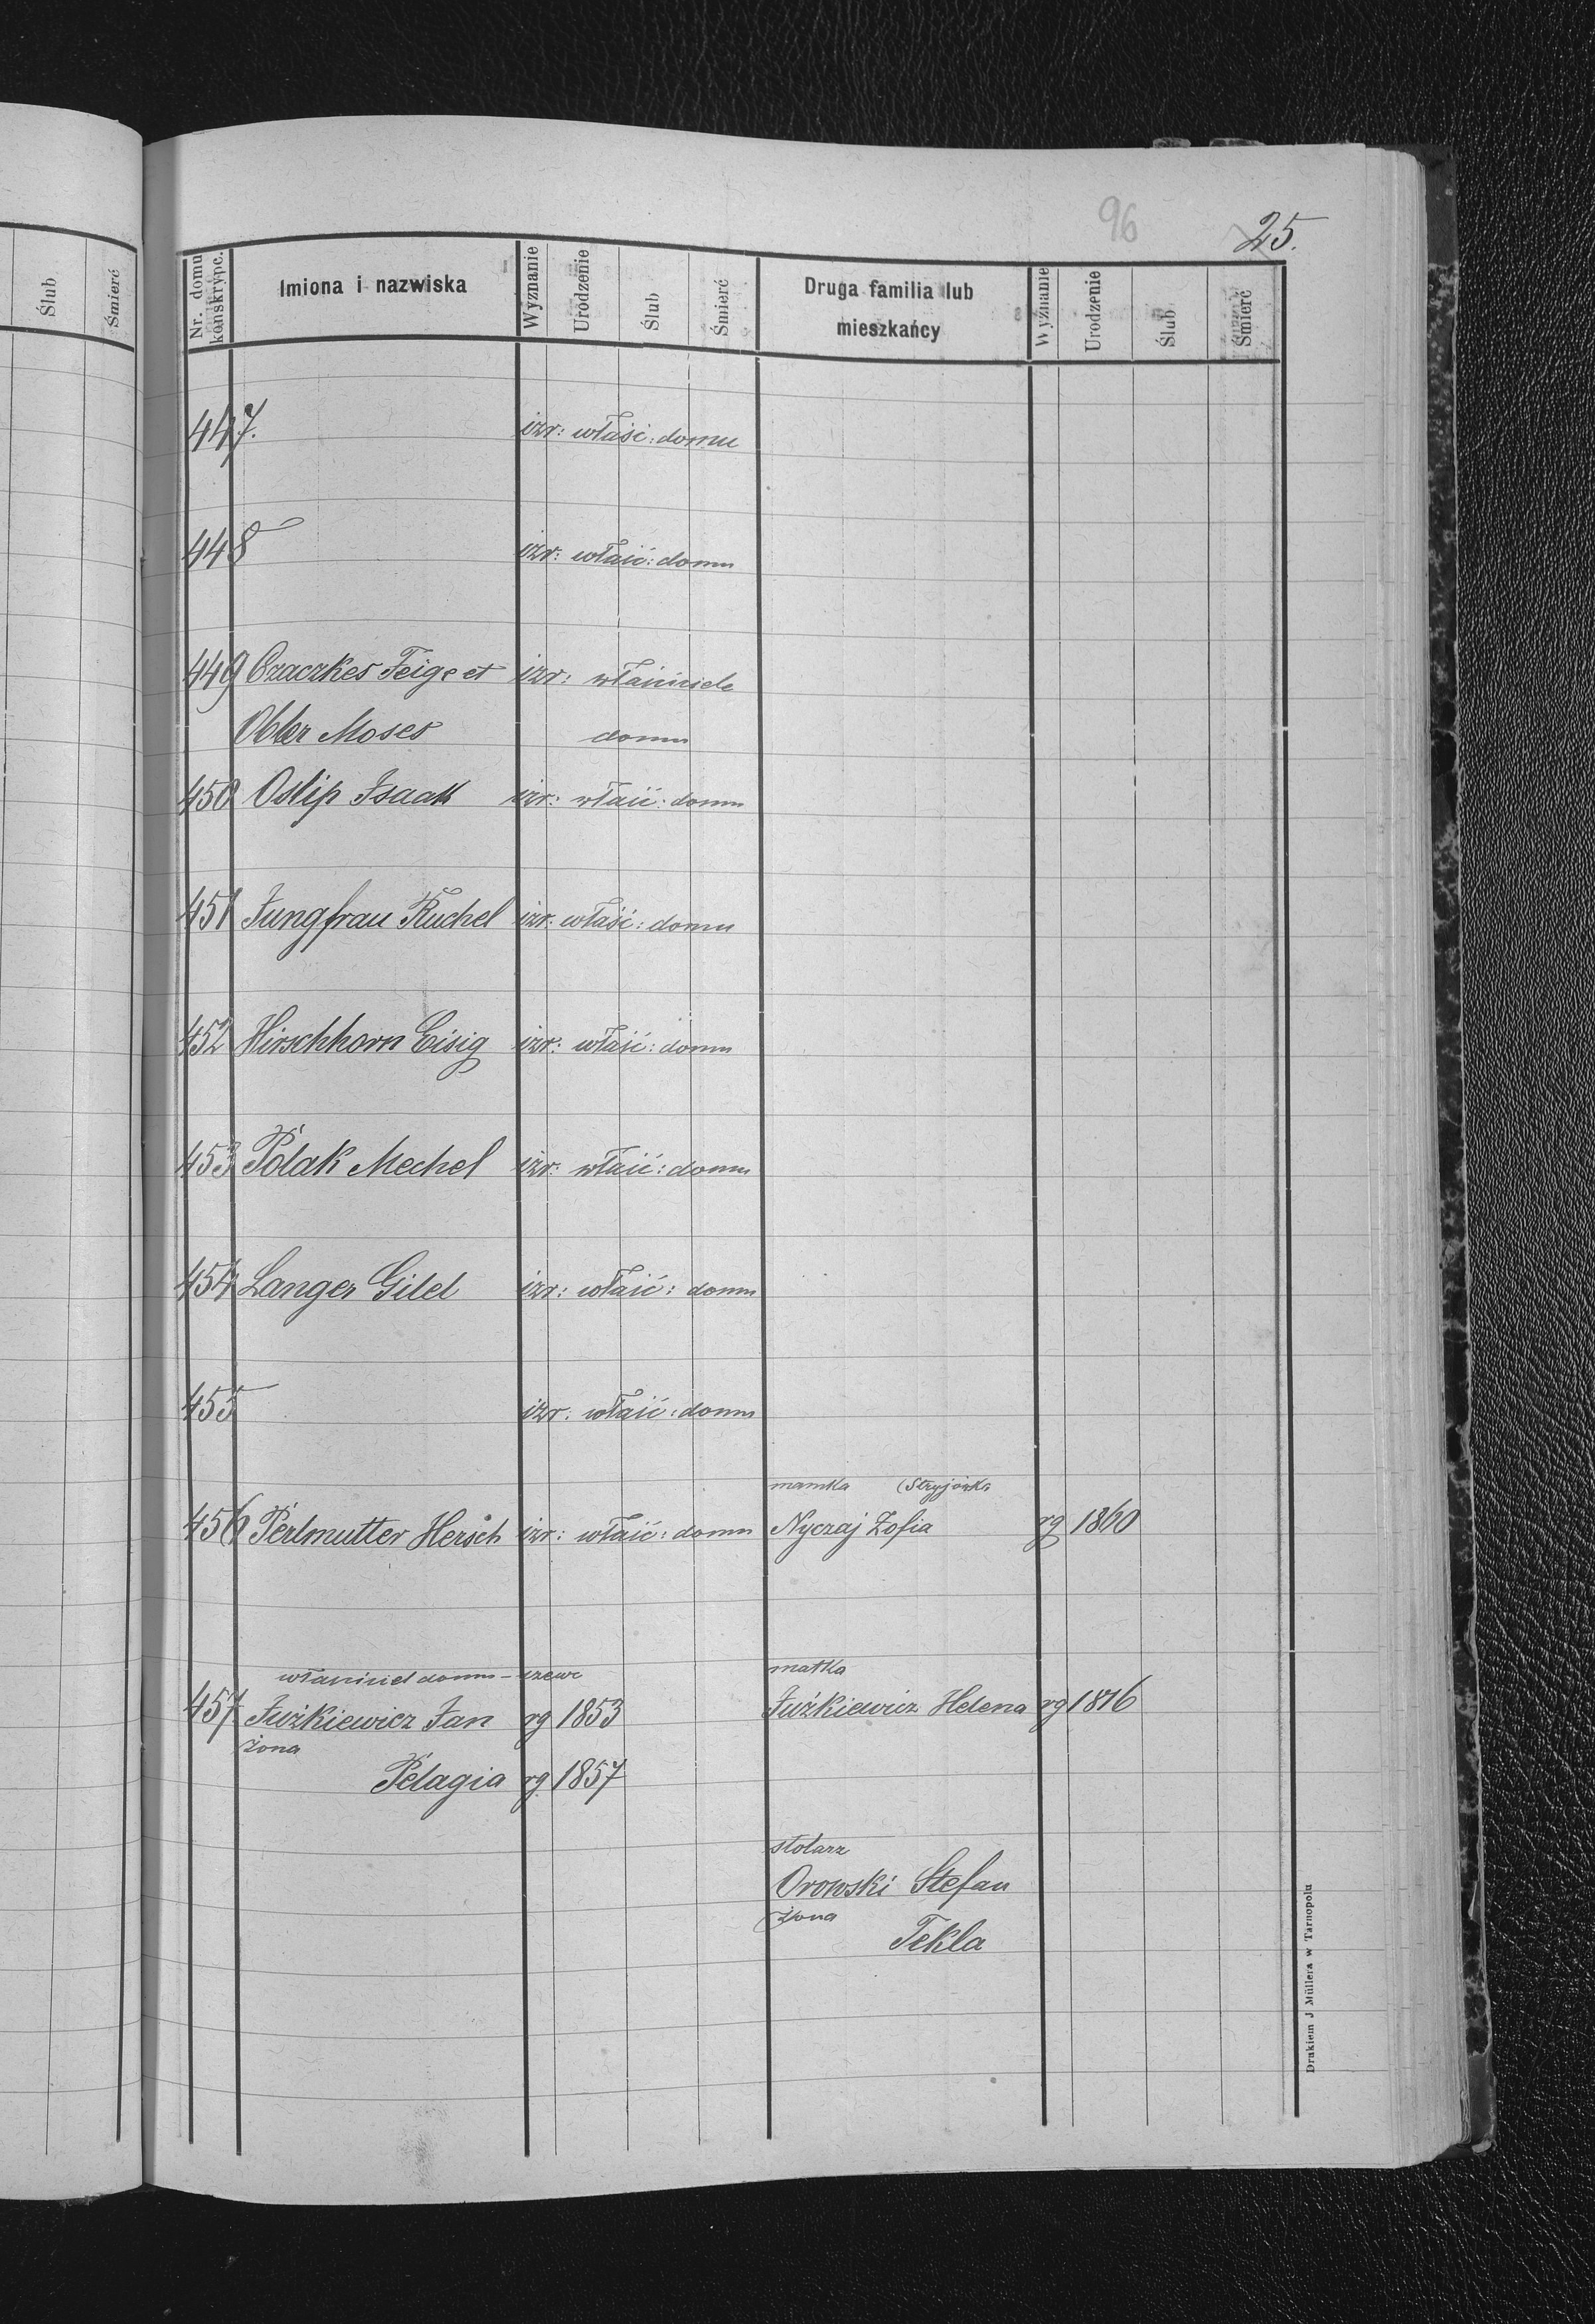 96
25.
Ślub
Śmierć
Nr. domu konskrypc.
Imiona i nazwiska
Wyznanie
Urodzenie
Ślub
Śmierć
Druga familia lub mieszkańcy
Wyznanie
Urodzenie
Ślub
Śmierć
447. izr: właść: domu
448 izr: właść: domu
449 Czaczkes Feige et izr: właściciele
Obler Moses domu
450 Oslip Isaak izr: właść: domu
451 Jungfrau Ruchel izr: właść: domu
452 Hirschhorn Eisig izr: właść: domu
453 Polak Mechel izr: właść: domu
454 Langer Gitel izr: właść: domu
455 izr: właść: domu
mamka (Stryjówka
456 Perlmutter Hersch izr: właść: domu Nyczaj Zofia rg 1860
właściciel domu - szewc matka
457 Juźkiewicz Jan rg 1853 Juźkiewicz Helena rg 1816
żona
Pelagia rg 1857
stolarz
Orowski Stefan
żona
Tekla
Drukiem J Müllera w Tarnopolu